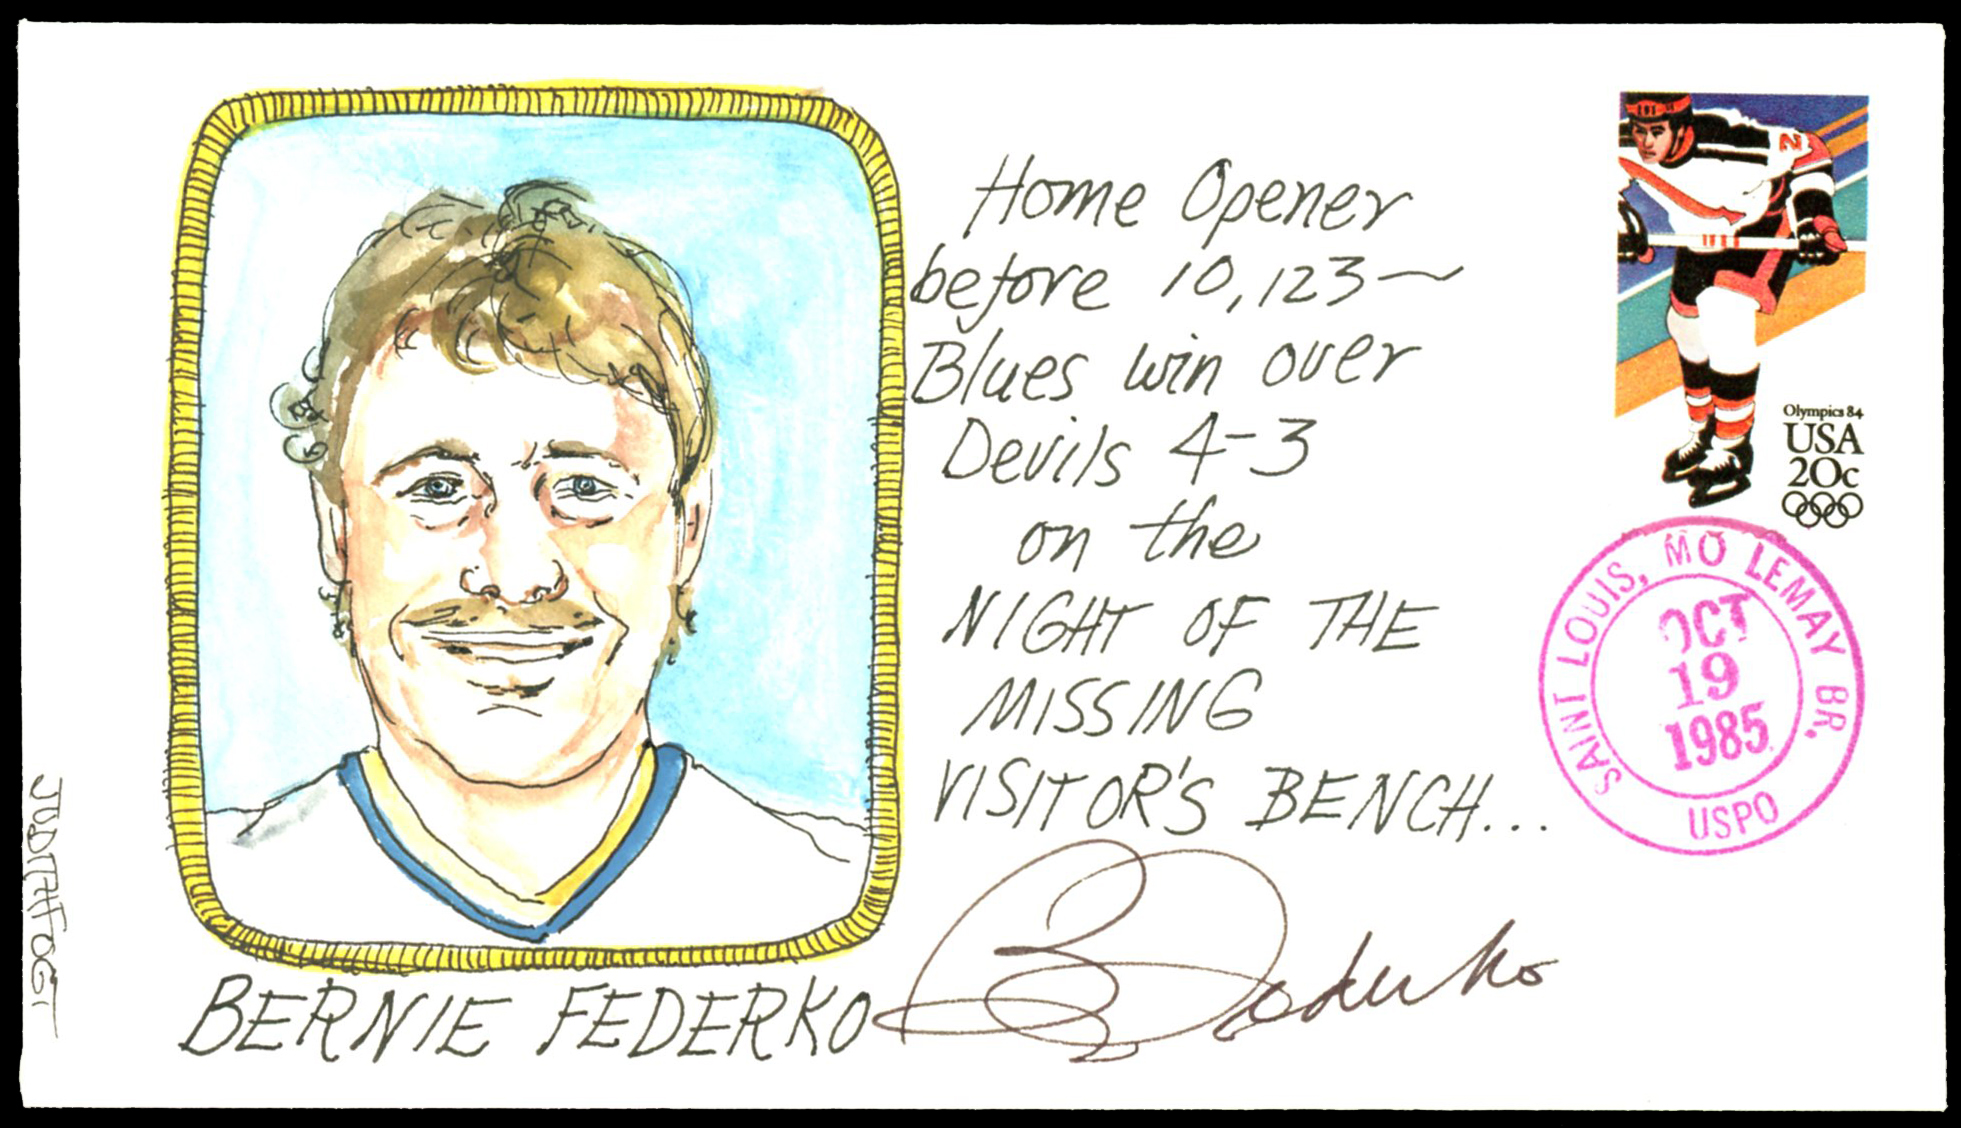 Home Opener
before 10,123~
Blues win over
Devils 4-3
on the
NIGHT OF THE
MISSING
VISITOR'S BENCH...
BERNIE FEDERKO
B Federko
JUDITH FOGT
2
Olympics 84
USA
20c
SAINT LOUIS, MO LEMAY BR.
OCT
19
1985
USPO